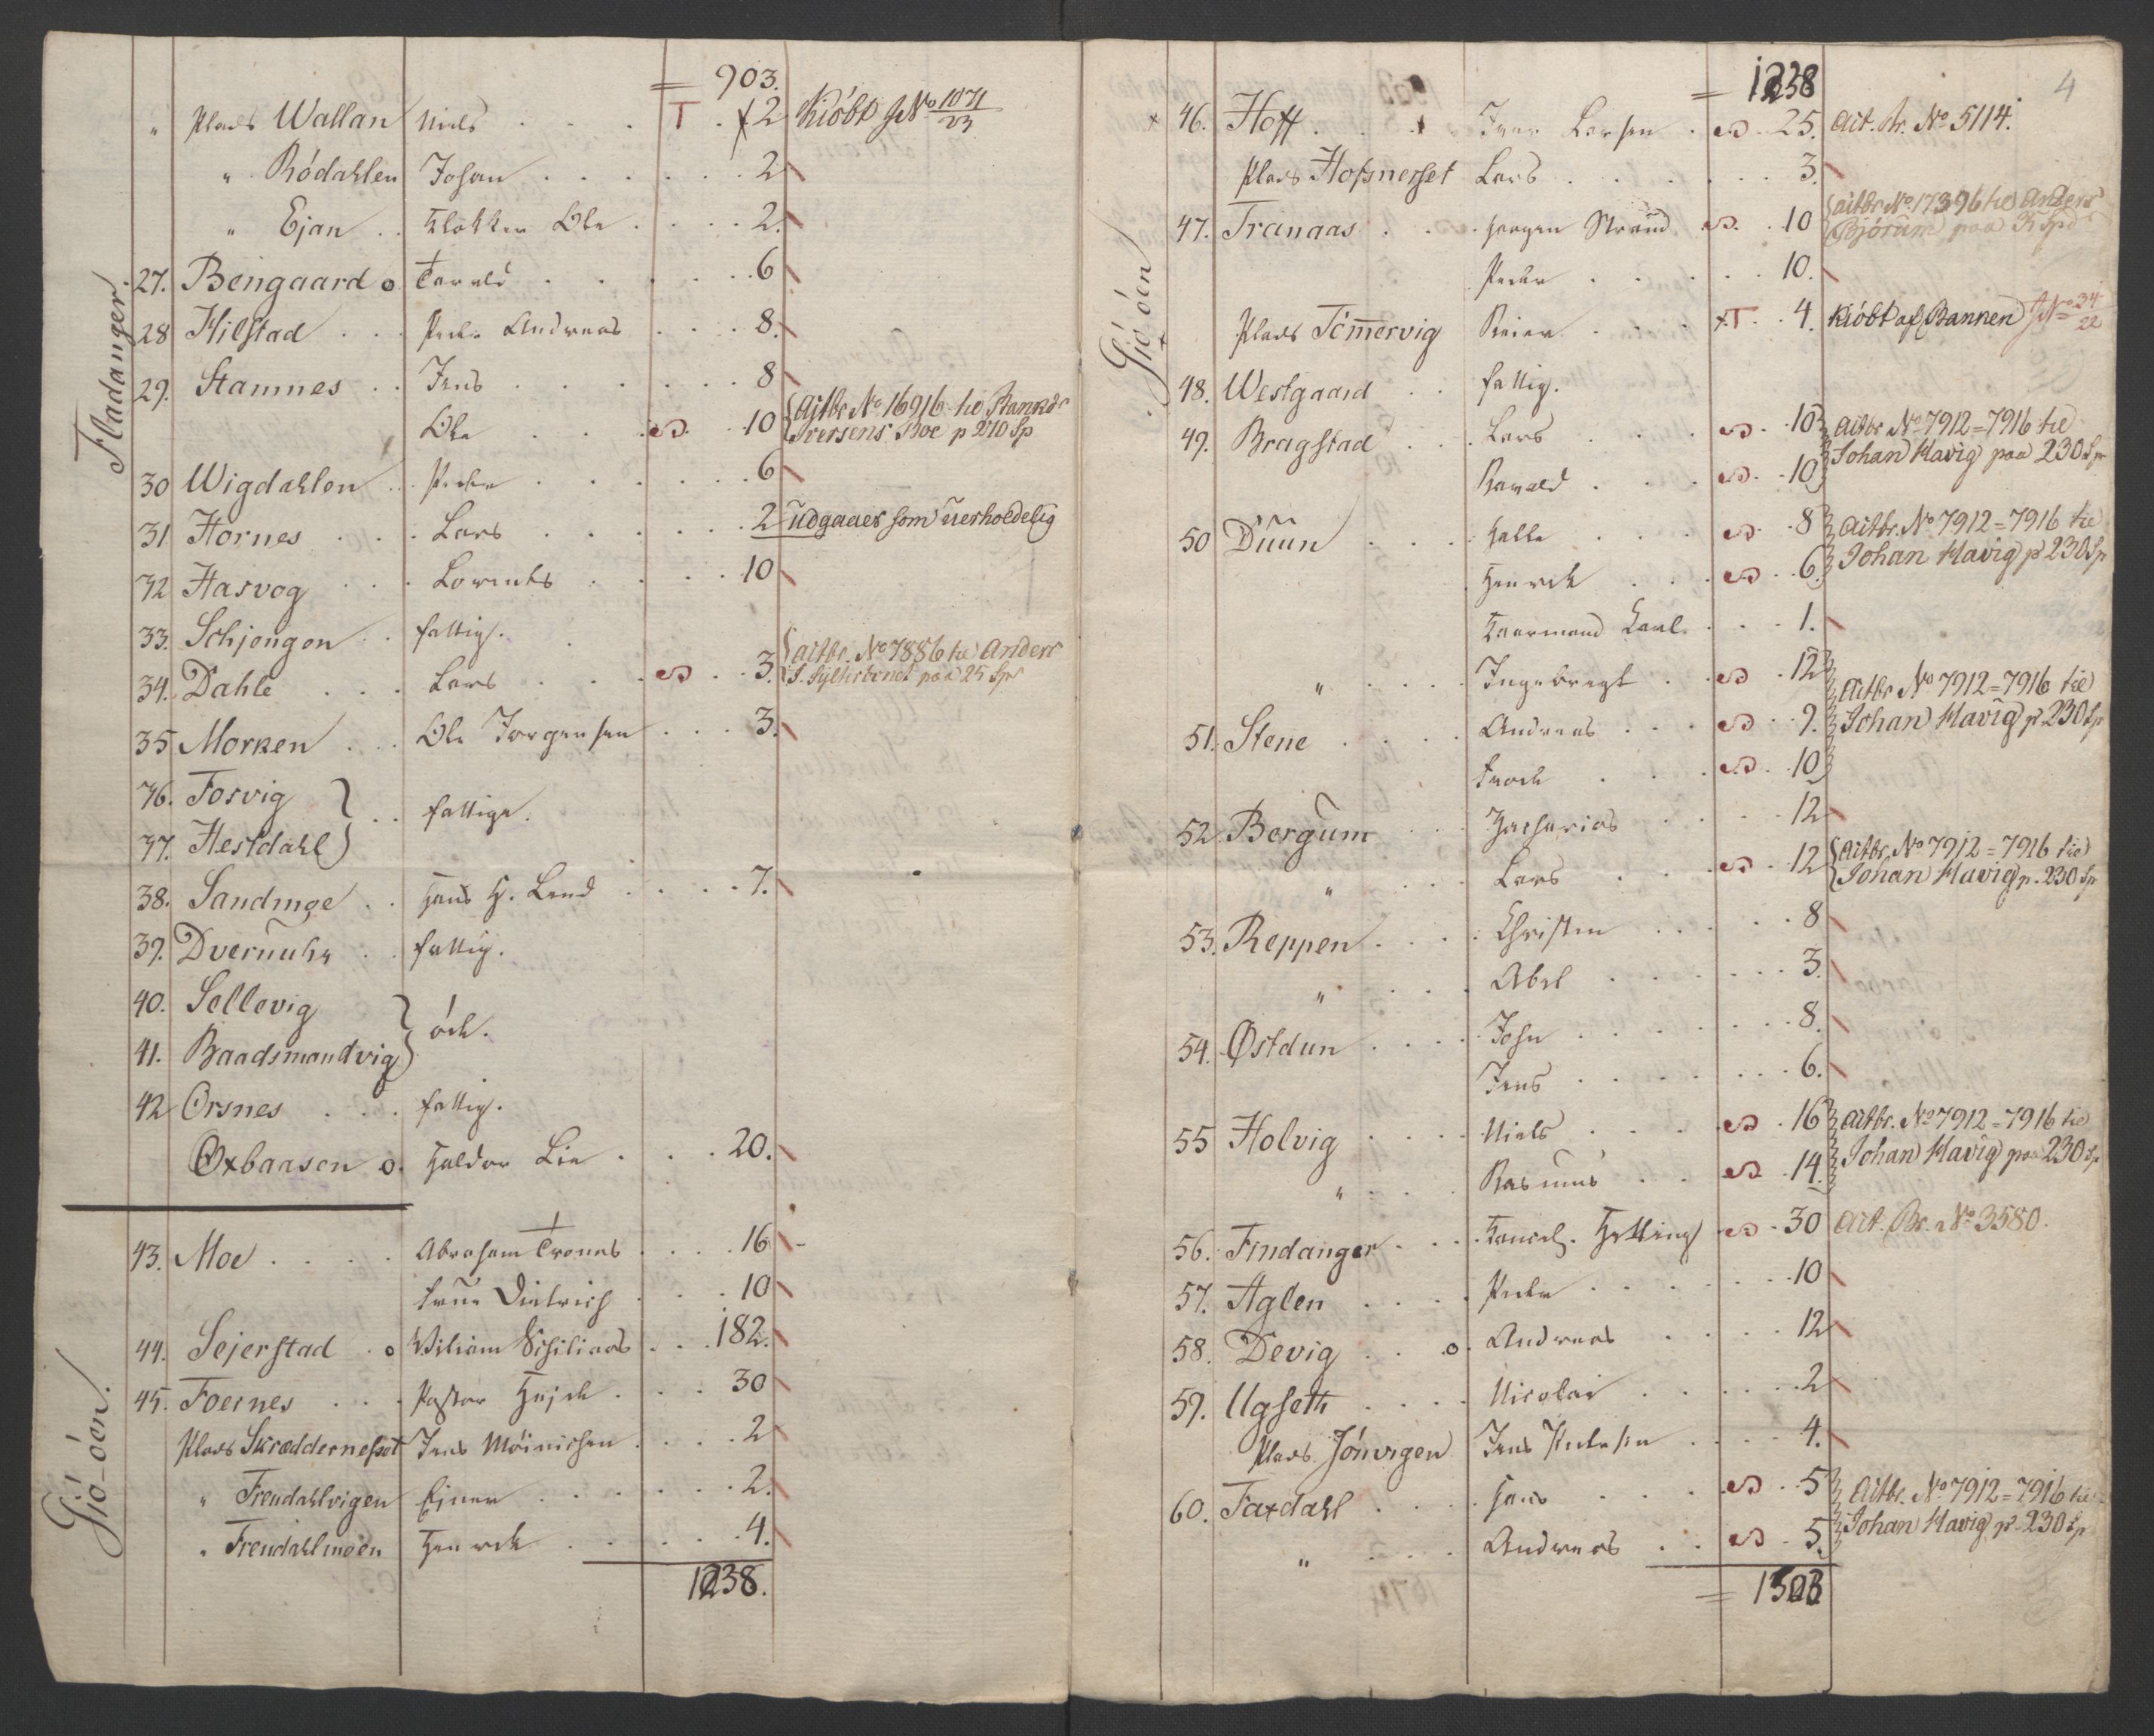 = 903.
Fladanger.
" Plads Wallan Niels . . . T . x2 Kiöbt J No 1071/23
" Rödahlen Johan . . . 2
" Ejan . . Klokker Ole . . . 2.
27. Bengaard o. Torald . . . 6
28 Hilstad . . . Peder Andreas . . . 8.
29. Stamnes . . Jens . . . 8
Ole . . . 10 {Aitbr No 16916 til Bankdr Iversens Boe p 210 Sp
30 Wigdahlen . . Peder . . . 6
31 Hornes . . . Lars . . . 2 udgaaer som uerholdelig
32 Hasvog . . . Lorents . . . 10
33. Schjengen . . fattig.
34. Dahle . . . Lars . . . 3. {Aitbr. No 7886 til Anders S. paa 25 Spr
35 Morken . . . Ole Jørgensen . . . 3.
36. Fosvig }
37. Hestdahl } . . fattige.
38. Sandmoe . . Hans H. Lund . . . 7.
39. Dvernuhr . . fattig.
40. Sellevig }
41. Baadsmandvig } öde.
42 Orsnes . . . fattig.
Oxbaasen o. Haldor Lie . . . 20.
Giö-öen.
43. Moe . . . Abraham Trones . . . 16
Frue Dietrich . . . 10
44. Sejerstad . o Wiliam Sisilius . . . 182.
45. Foernes . . . Pastor Hejde . . . 30
Plads Skræddernesset Jens . . . 2
" Frendahlvigen Ejner . . . 2.
" Frendahlmoen Henrik . . . 4.
1238.
4
= 1238
Giö öen
x 46. Hoff . . . x Iver Larsen . 25. Ait. Br. No 5114.
Plads Hofsnesset Lars . . . 3.
47. Tranaas . . . Jørgen Strand . 10 {Aitbr No 17396 til Anders Bjørum paa 35 Spd
Peder . . . 10.
Plads Tömmervig Reier . . . x.T. . 4. Kiöbt af Banken J No 34/22
48. Westgaard . . fattig.
49. Bragstad . . . Lars . . . 10 Aitbr No 7912=7916 til
Harald . . . 10 Johan Havig paa 230 Spr
50 Duun . . . Halle . . . 8 Aitbr. No 7912=7916 til
Henrik . . . 6. Johan Havig p 230 Sp
Huusmand Carl . . . 1.
" . . . Ingebrigt . . 12 Aitbr No 7912=7916 til
51. Stene . . . Andreas . . . 9. Johan Havig p 230 Sp
. . . 10
52 Bergum . . . Zacharias . . . 12
" . . . Lars . . . 12 {Aitbr. No 7912=7916 til Johan Havig p. 230 Sp
53. Reppen . . . Christen . . . 8
" . . . Abel . . . 3.
54. Østdun . . . John . . . 8.
Jens . . . 6.
55 Holvig . . . Niels . . . 16 Aitbr. No 7912=7916 til
" . . . Rasmus . . 14. Johan Havig paa 230 Sp
56. Findanger . . . Hetting . 30 Ait. Br. No 3580.
57. Aglen . . . Peder . . . 10
58. Devig . . .o. Andreas . . . 12
59. Ugseth . . . Nicolai . . . 2
Plads Jönvigen Jens Pedersen . . . 4.
60. Faxdahl . . . Hans . . . 5 Aitbr. No 7912=7916 til
" . . . Andreas . . 5. Johan Havig p 230 Sp
= 1503